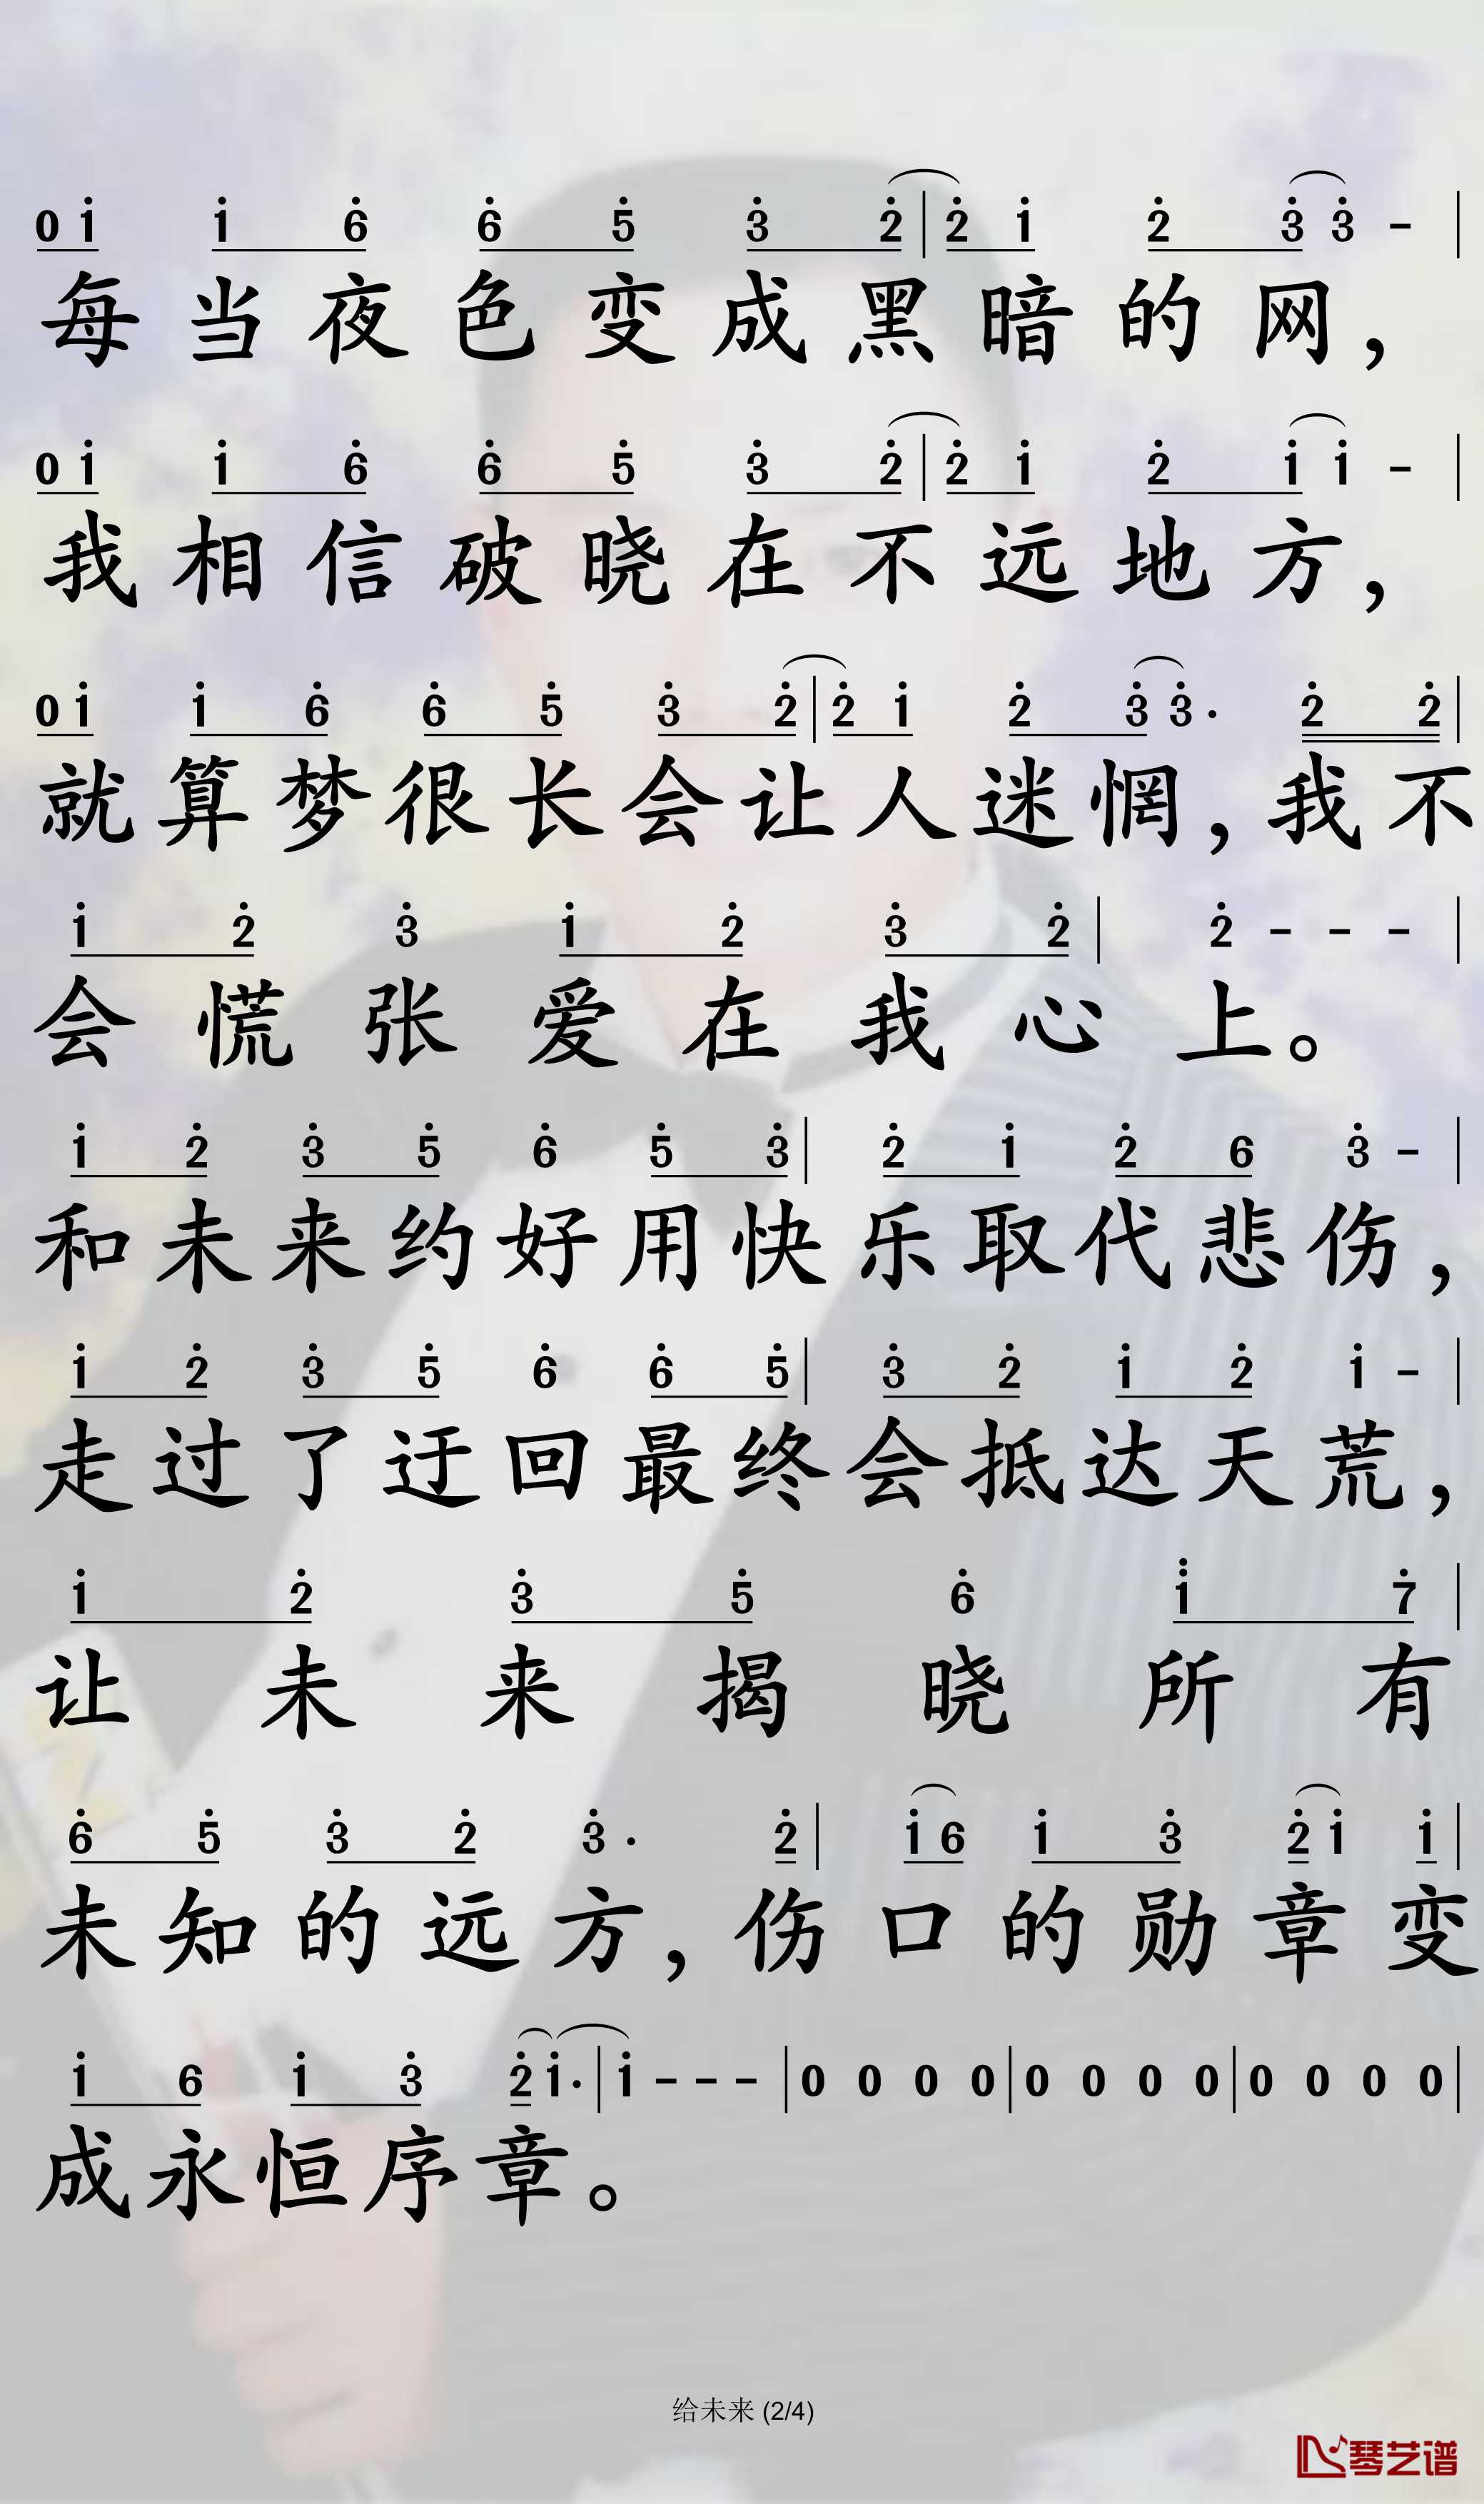 0 1̇ 1̇ 6̇ 6̇ 5̇ 3̇ 2̇ | 2̇ 1̇ 2̇ 3̇ 3̇ - |
每当夜色变成黑暗的网，
0 1̇ 1̇ 6̇ 6̇ 5̇ 3̇ 2̇ | 2̇ 1̇ 2̇ 1̇ 1̇ - |
我相信破晓在不远地方，
0 1̇ 1̇ 6̇ 6̇ 5̇ 3̇ 2̇ | 2̇ 1̇ 2̇ 3̇ 3̇· 2̇ 2̇ |
就算梦很长会让人迷惘，我不
1̇ 2̇ 3̇ 1̇ 2̇ 3̇ 2̇ | 2̇ - - - |
会慌张爱在我心上。
1̇ 2̇ 3̇ 5̇ 6̇ 5̇ 3̇ | 2̇ 1̇ 2̇ 6 3̇ - |
和未来约好用快乐取代悲伤，
1̇ 2̇ 3̇ 5̇ 6̇ 6̇ 5̇ | 3̇ 2̇ 1̇ 2̇ 1̇ - |
走过了迂回最终会抵达天荒，
1̇ 2̇ 3̇ 5̇ 6̇ 1̈ 7̇ |
让未来揭晓所有
6̇ 5̇ 3̇ 2̇ 3̇· 2̇ | 1̇ 6 1̇ 3̇ 2̇ 1̇ 1̇ |
未知的远方，伤口的勋章变
1̇ 6 1̇ 3̇ 2̇ 1̇· | 1̇ - - - | 0 0 0 0 | 0 0 0 0 | 0 0 0 0 |
成永恒序章。
给未来 (2/4)
琴艺谱